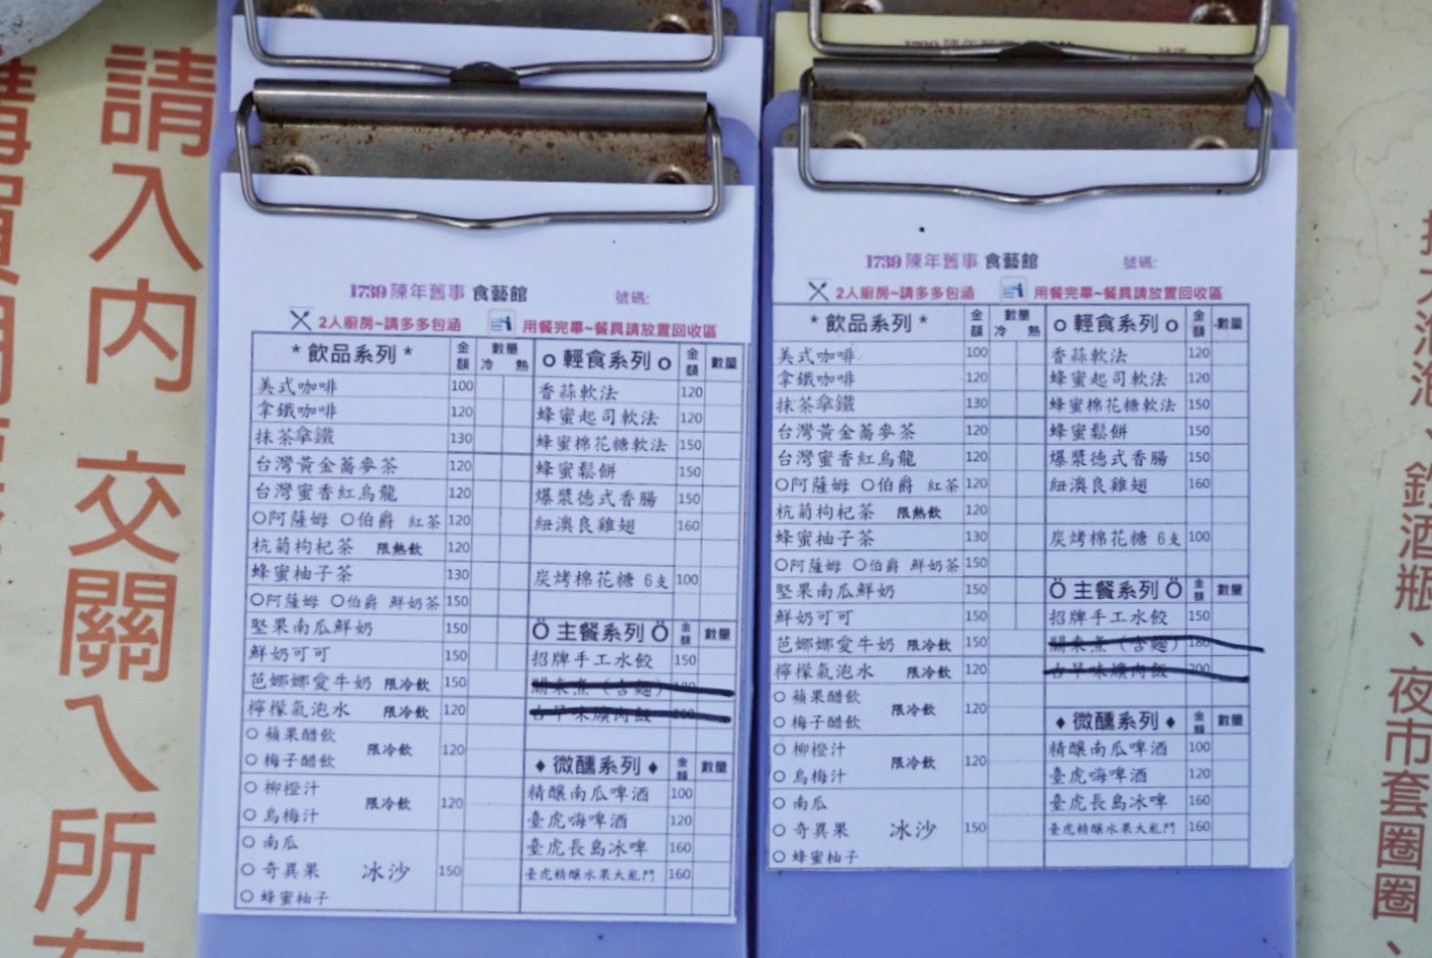 請入內 交關入所
1739 陳年舊事 食藝館 號碼:
2人廚房~請多多包涵 用餐完畢~餐具請放置回收區
*飲品系列* 金額 數量 冷 熱
美式咖啡 100
拿鐵咖啡 120
抹茶拿鐵 130
台灣黃金蕎麥茶 120
台灣蜜香紅烏龍 120
○阿薩姆 ○伯爵 紅茶 120
杭菊枸杞茶 限熱飲 120
蜂蜜柚子茶 130
○阿薩姆 ○伯爵 鮮奶茶 150
堅果南瓜鮮奶 150
鮮奶可可 150
芭娜娜愛牛奶 限冷飲 150
檸檬氣泡水 限冷飲 120
○ 蘋果醋飲
○ 梅子醋飲
限冷飲 120
○ 柳橙汁
○ 烏梅汁
限冷飲 120
○ 南瓜
○ 奇異果 冰沙 150
○ 蜂蜜柚子
o 輕食系列 o 金額 數量
香蒜軟法 120
蜂蜜起司軟法 120
蜂蜜棉花糖軟法 150
蜂蜜鬆餅 150
爆漿德式香腸 150
紐澳良雞翅 160
炭烤棉花糖 6支 100
Ö 主餐系列 Ö 金額 數量
招牌手工水餃 150
關東煮（含麵）
古早味爌肉飯
♦ 微醺系列 ♦ 金額 數量
精釀南瓜啤酒 100
臺虎嗨啤酒 120
臺虎長島冰啤 160
臺虎精釀水果大亂鬥 160
1739 陳年舊事 食藝館 號碼:
2人廚房~請多多包涵 用餐完畢~餐具請放置回收區
*飲品系列* 金額 數量 冷 熱
美式咖啡 100
拿鐵咖啡 120
抹茶拿鐵 130
台灣黃金蕎麥茶 120
台灣蜜香紅烏龍 120
○阿薩姆 ○伯爵 紅茶 120
杭菊枸杞茶 限熱飲 120
蜂蜜柚子茶 130
○阿薩姆 ○伯爵 鮮奶茶 150
堅果南瓜鮮奶 150
鮮奶可可 150
芭娜娜愛牛奶 限冷飲 150
檸檬氣泡水 限冷飲 120
○ 蘋果醋飲
○ 梅子醋飲
限冷飲 120
○ 柳橙汁
○ 烏梅汁
限冷飲 120
○ 南瓜
○ 奇異果 冰沙 150
○ 蜂蜜柚子
o 輕食系列 o 金額 數量
香蒜軟法 120
蜂蜜起司軟法 120
蜂蜜棉花糖軟法 150
蜂蜜鬆餅 150
爆漿德式香腸 150
紐澳良雞翅 160
炭烤棉花糖 6支 100
Ö 主餐系列 Ö 金額 數量
招牌手工水餃 150
關東煮（含麵） 180
古早味爌肉飯 200
♦ 微醺系列 ♦ 金額 數量
精釀南瓜啤酒 100
臺虎嗨啤酒 120
臺虎長島冰啤 160
臺虎精釀水果大亂鬥 160
酒瓶、夜市套圈圈、